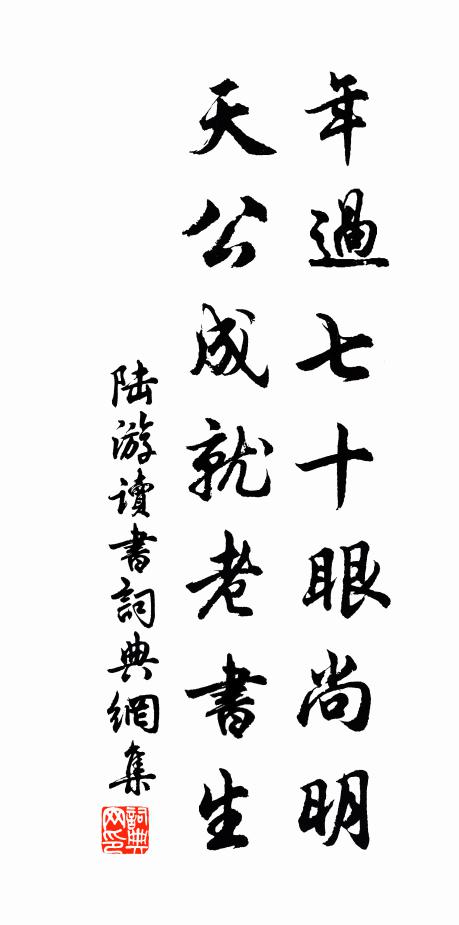 年過七十眼尚明
天公成就老書生
陆游讀書詞典網集
詞典
网印